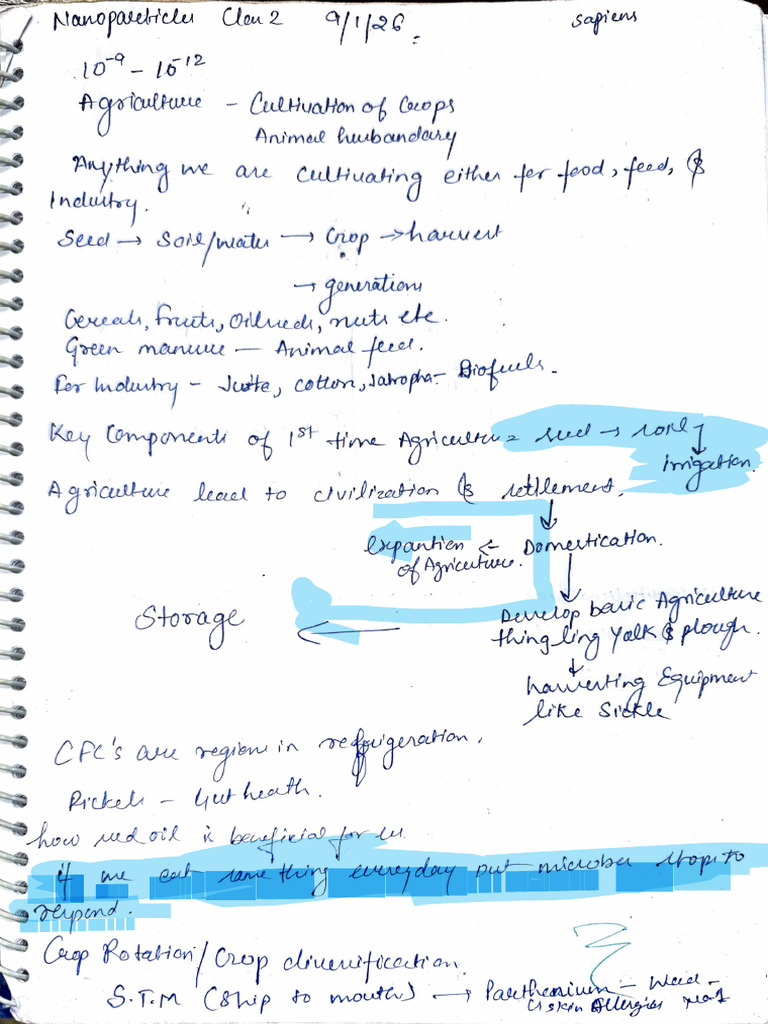 Nanoparticles Class 2 9/1/26 sapiens
10⁻⁹ – 10⁻¹²
Agriculture – Cultivation of Crops
Animal husbandary
Anything we are cultivating either for food, feed, &
Industry.
Seed → Soil/water → Crop → harvest
→ generations
Cereals, fruits, Oilseeds, nuts etc.
Green manure – Animal feed.
For Industry – Jutte, cotton, Jatropha – Biofuels.
Key Components of 1st time Agriculture = seed → soil ↓
irrigation.
Agriculture lead to civilization & settlement.
↓
expantion of Agriculture. ← Domestication.
↓
Storage ← Develop basic Agriculture
thing ling Yalk & plough.
↓
harvesting Equipment
like Sickle
CFC's are regions in refrigeration.
Pickels – Gut heath.
how red oil is beneficial for us
if we eat same thing everyday our microbes stops to
respond.
Crop Rotation / Crop diversification.
S.T.M (Ship to mouth) → Parthenium – weed –
skin Allergies